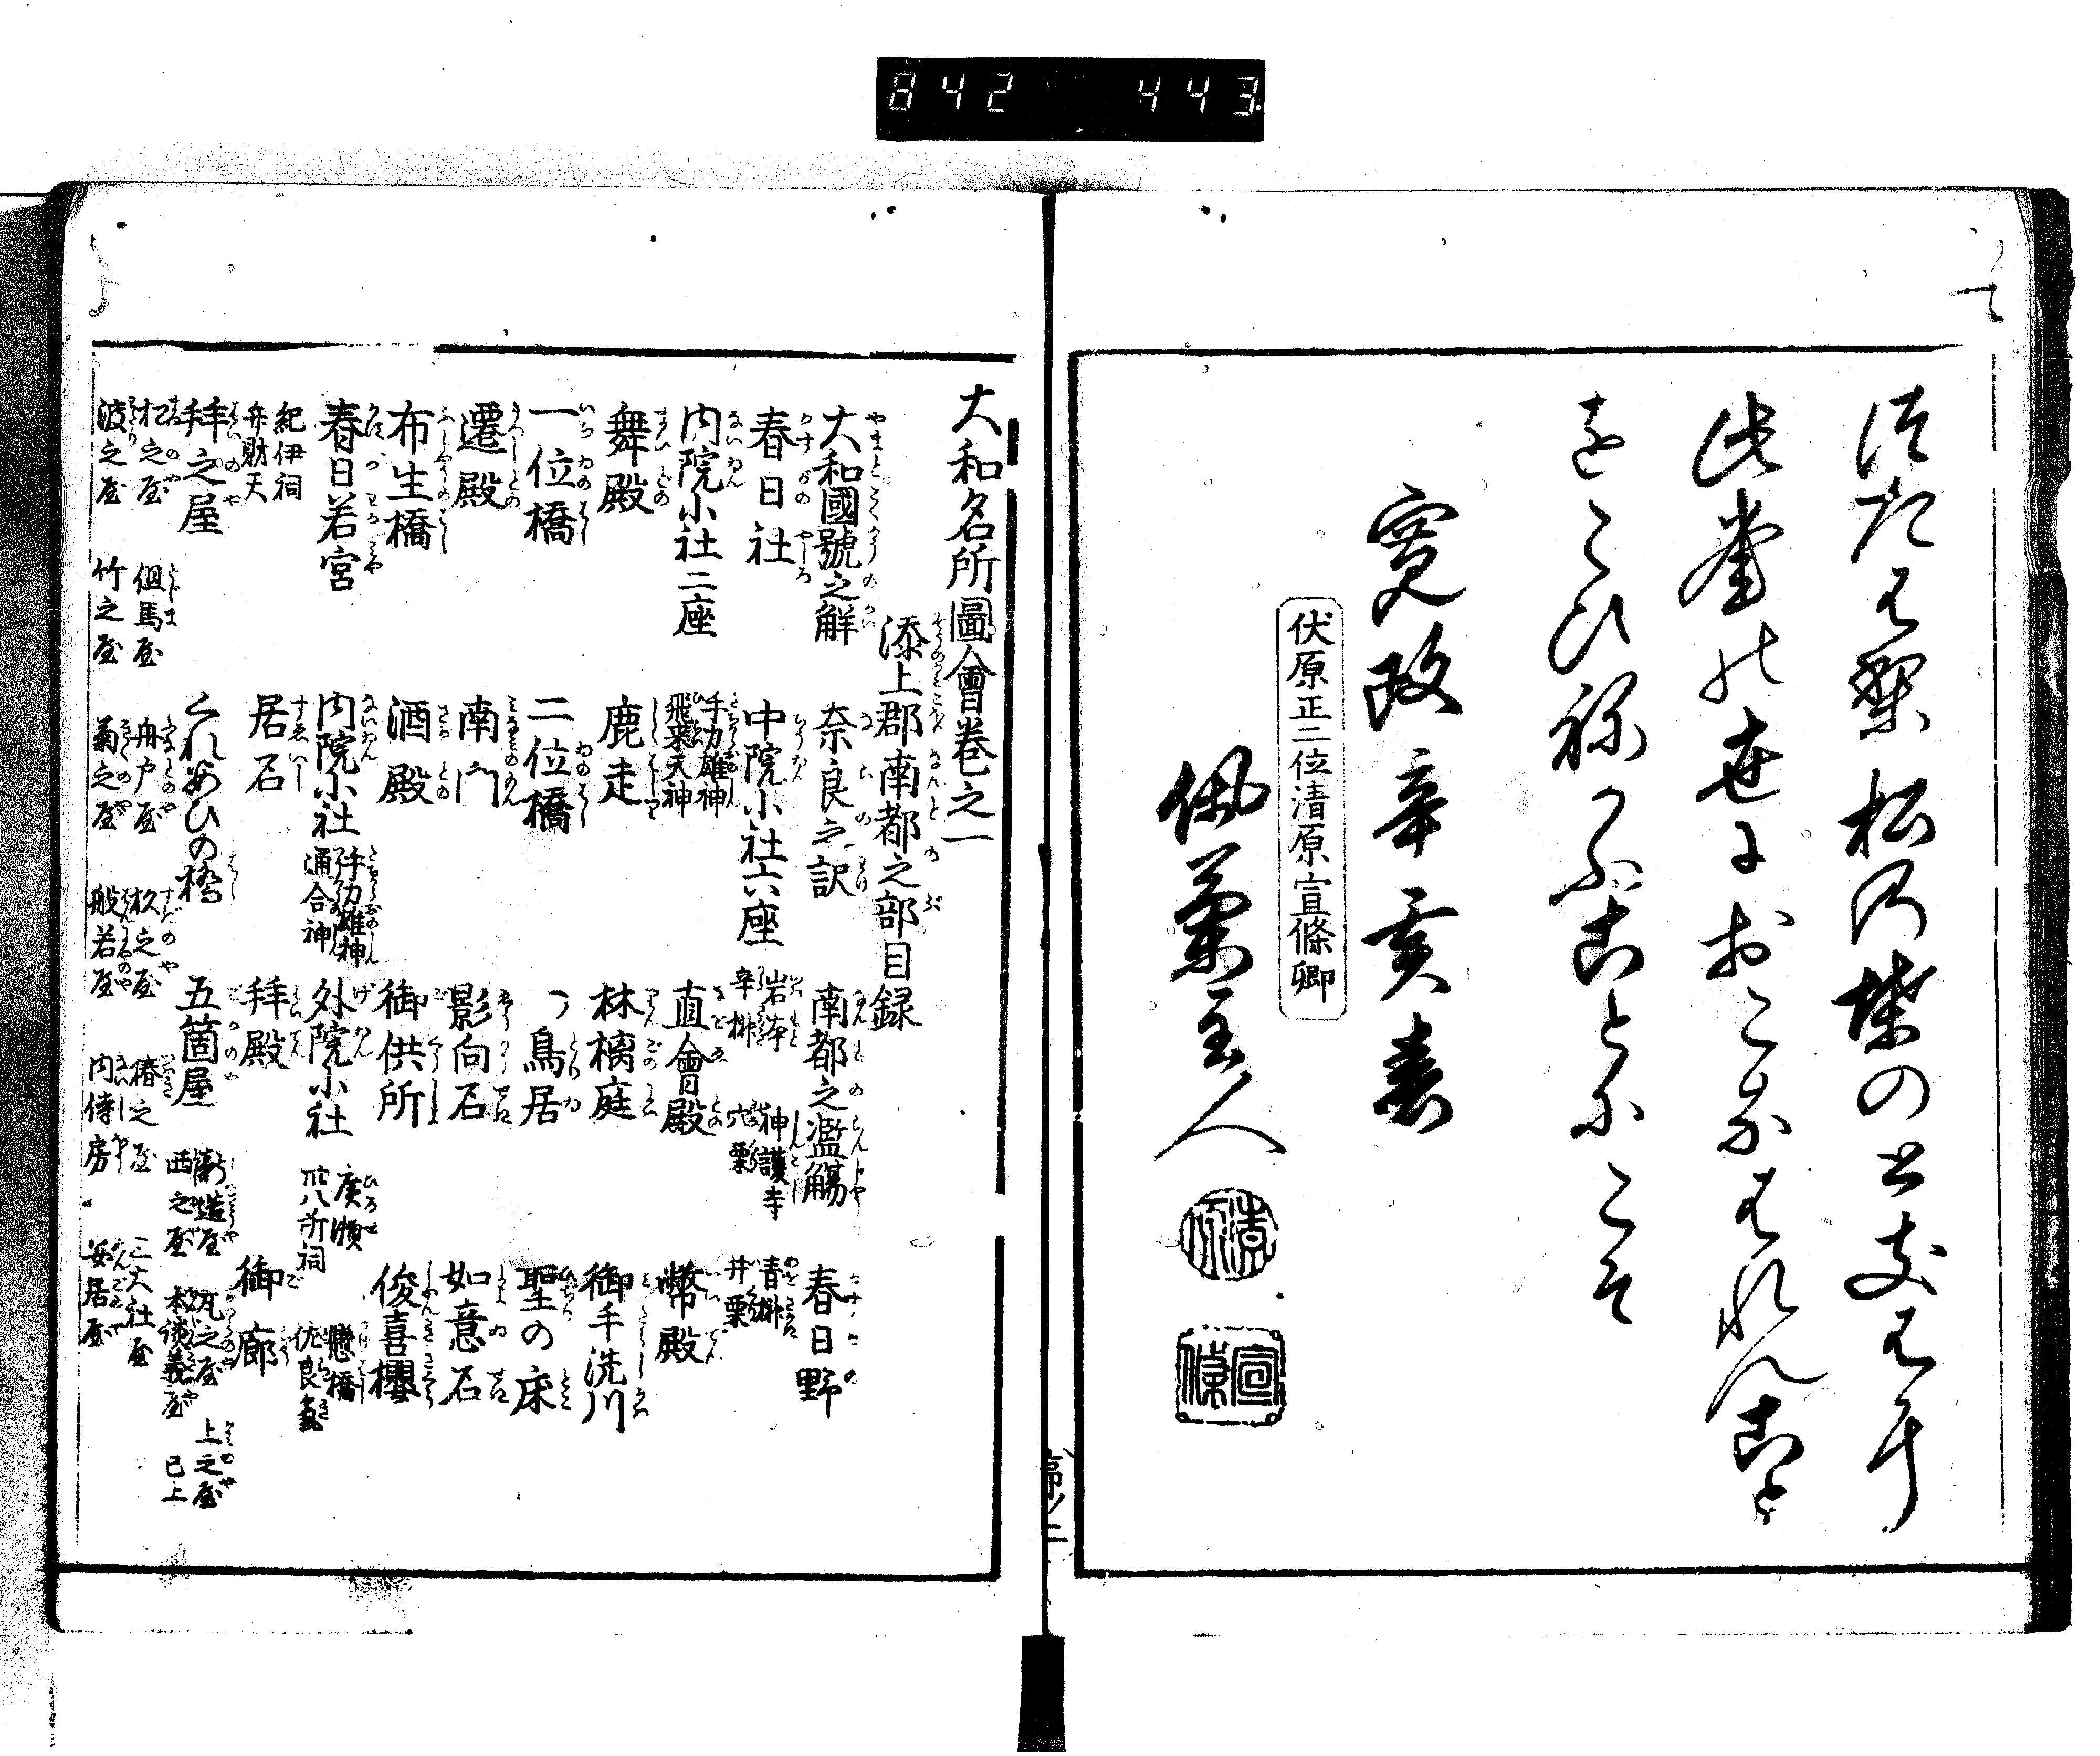 842 443
此巻の世におこなはれんこと
をこひねかふことにこそ
寛政辛亥春
伏原正二位清原宣條卿
佩蘭主人
宣條
大和名所圖會巻之一
添上郡南都之部目録
大和國號之解 奈良之訳 南都之濫觴 春日野
春日社 中院小社六座 岩本 辛榊 神護寺 穴栗 青榊 井栗
内院小社二座 手力雄神 飛来天神 直會殿 幣殿
舞殿 鹿走 林檎庭 御手洗川
一位橋 二位橋 一鳥居 聖の床
遷殿 南門 影向石 如意石
布生橋 酒殿 御供所 俊喜櫻
春日若宮 内院小社 手力雄神 通合神 外院小社 廣瀬 卅八所祠 懸橋 佐良氣
紀伊祠 弁財天 居石 拝殿 御廊
拝之屋 くれあひの橋 五箇屋 新造屋 西之屋 瓦之屋 本談義屋 上之屋 已上
杉之屋 但馬屋 舟戸屋 椿之屋 三大社屋
波之屋 竹之屋 菊之屋 般若屋 内侍房 安居屋